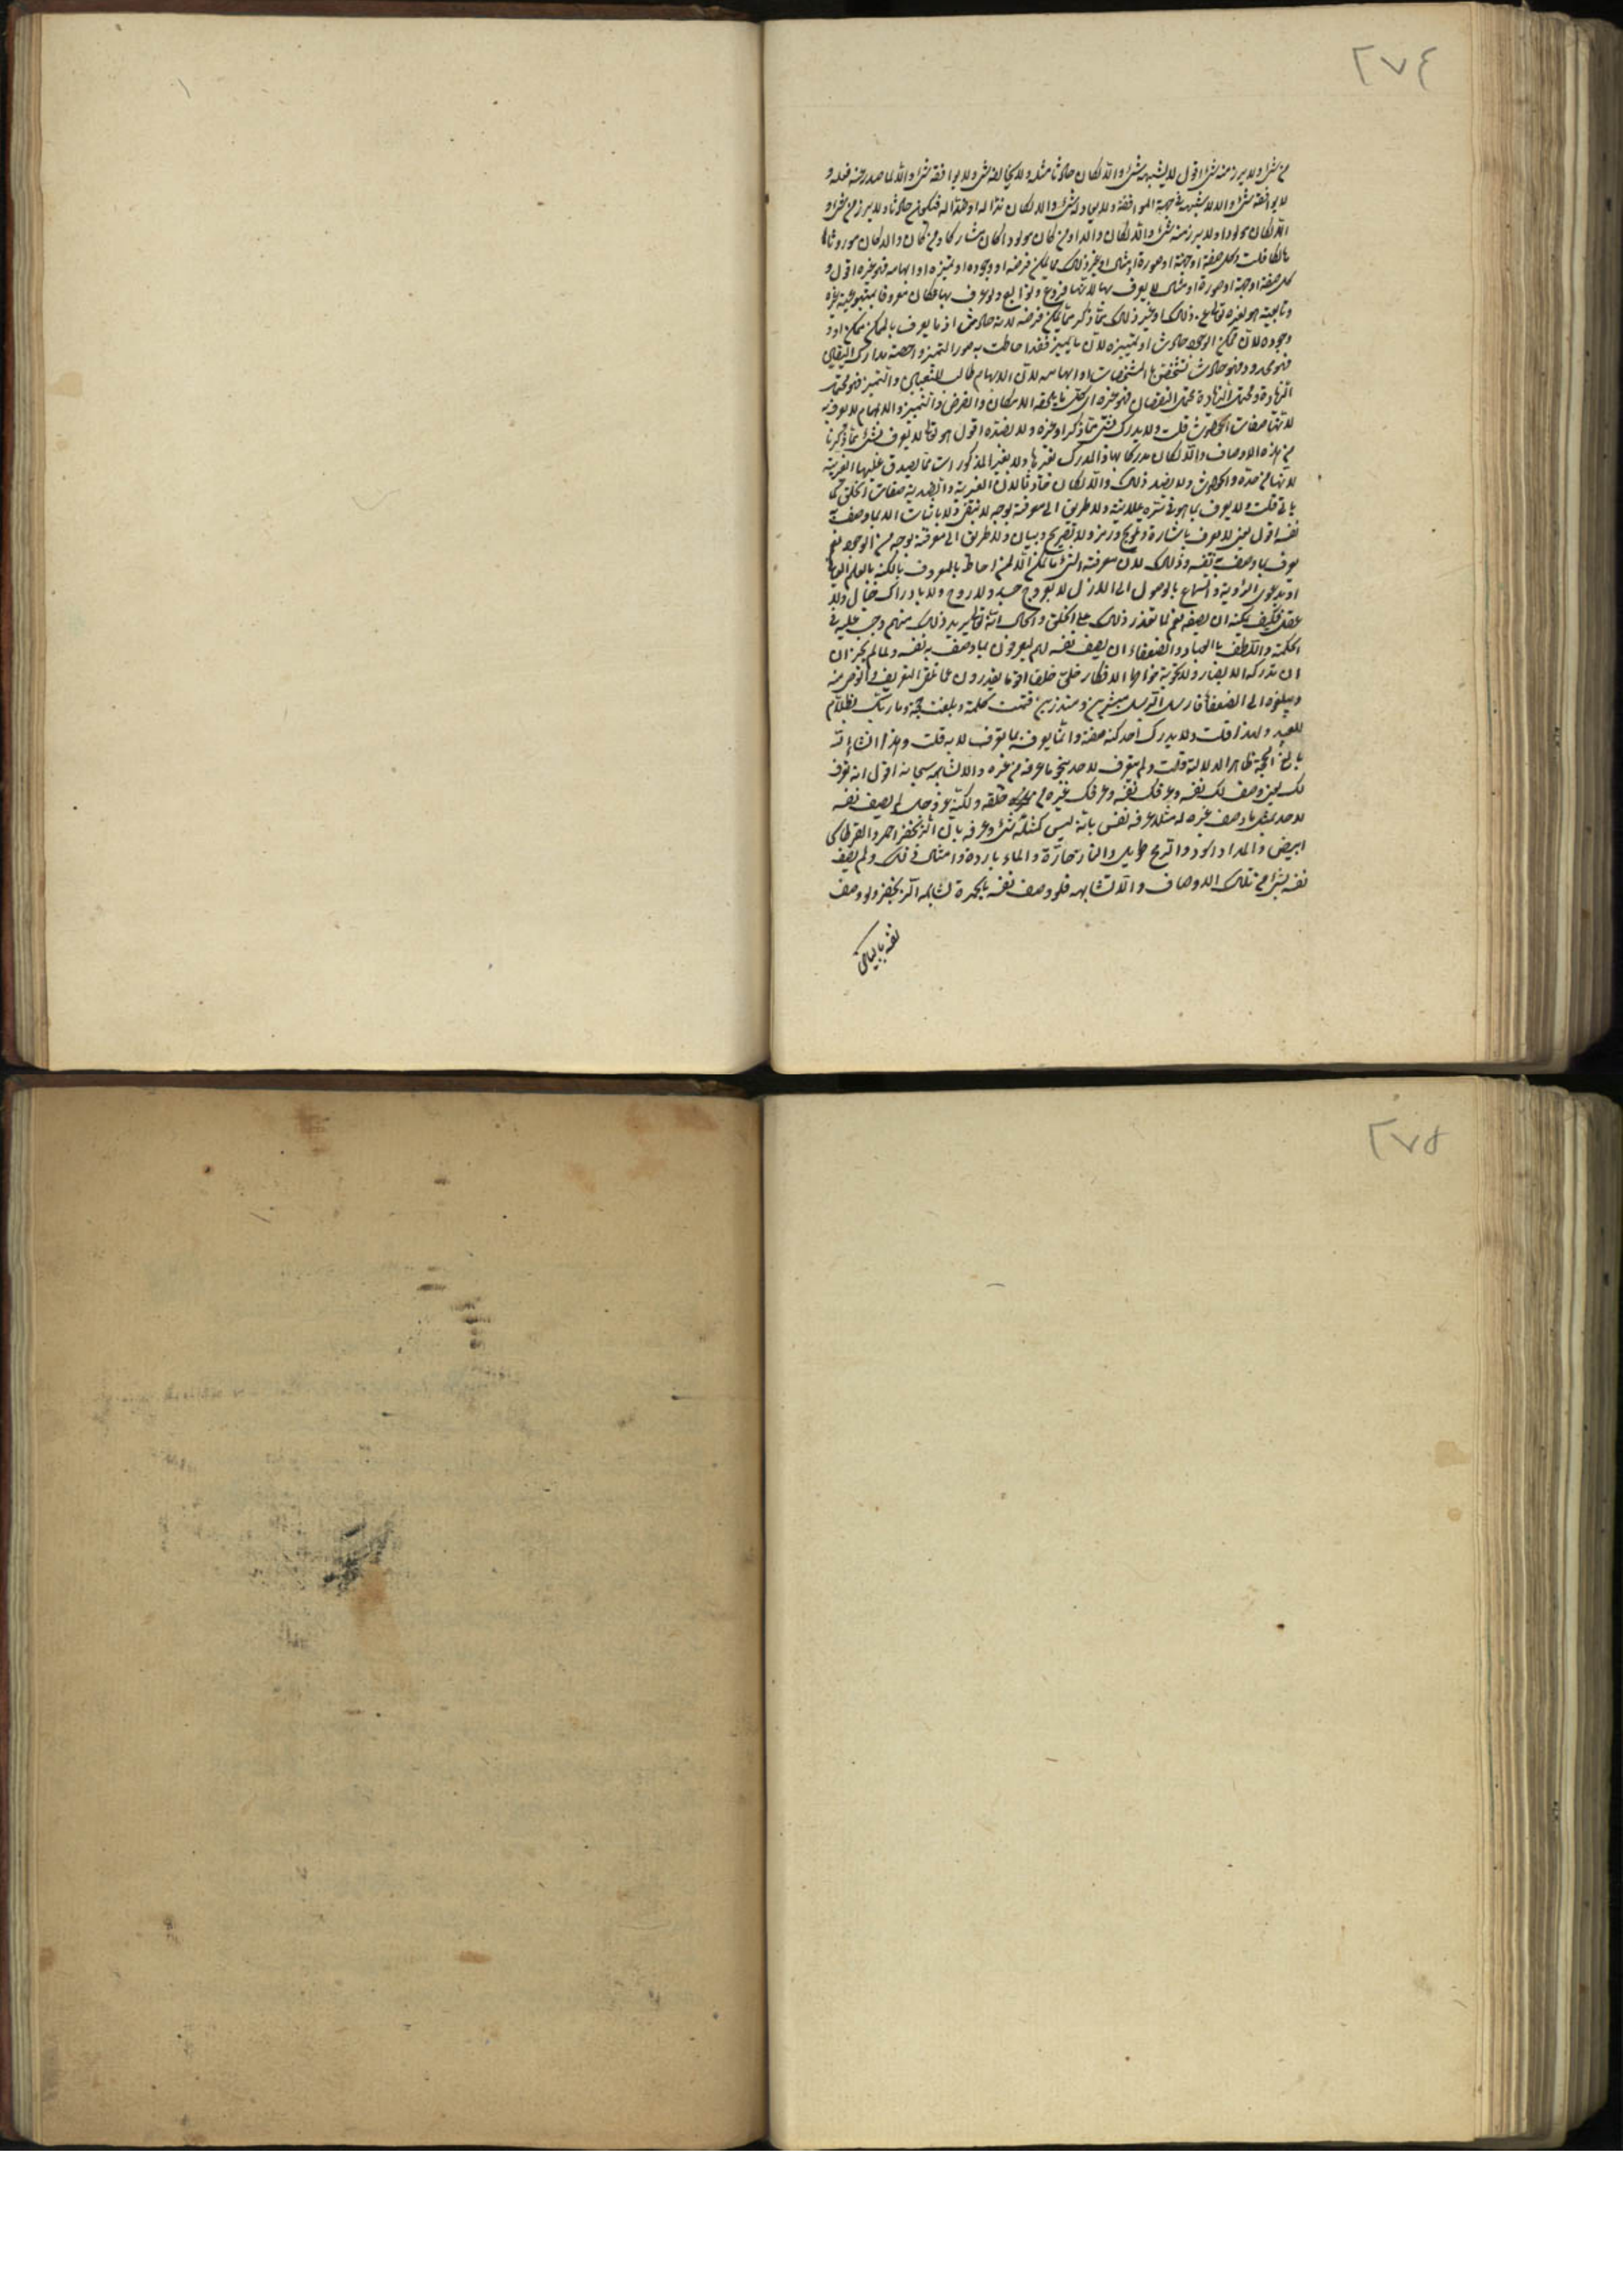 ٢٧٤
من شئ ولا يبرز منه شئ اقول لا يشبهه شئ والا لكان حادثا مثله ولا يخالفه شئ ولا يوافقه شئ والا لما صدر عنه فعله و
لا يوافقه شئ والا لا يشبهه في جهة الموافقة ولا يعادله شئ والا لكان ندا له او ضدا له فيكون حادثا ولا يبرز من شئ و
الا لكان مولودا ولا يبرز منه شئ والا لكان والدا ومن كان مولودا كان مشاركا ومن كان والدا كان موروثا
هالكا قلت وكل صفة او جهة او صورة او مثال او غير ذلك مما يمكن فرضه او وجوده او تميزه او ابهامه فهو غيره اقول و
كل صفة او جهة او صورة او مثال لا يعرف بها لانها فروع وتوابع ولو عرف بها لكان معروفا
ذلك او غير ذلك مما ذكر مما يمكن فرضه لانه حادث اذ ما يعرف بالممكن ممكن او
وجوده لان ممكن الوجود حادث او تمييزه لان ما يميز فقد احاطت به صور التميز
فهو محدود فهو حادث بالمشخصات او ابهامه لان الابهام طالب للتعيين والتميز فهو محتمل
الزيادة ومحتمل الزيادة محتمل النقصان فهو غيره اي كل ما يلحقه الامكان والفرض والتميز والابهام لا يعرف به
لانها صفات الحدوث قلت ولا يدرك بشئ مما ذكر او غيره ولا بضده اقول هو تعالى لا يعرف بشئ مما ذكرنا
من هذه الاوصاف والا لكان مدركا بها ولا بغير المذكورات مما يصدق عليها الغيرية
لانها من الحدوث ولا بضد ذلك والا لكان حادثا لان الغيرية والضدية صفات الخلق كما
ياتي قلت ولا يعرف بما هو في سره علانية ولا طريق الى معرفته بوجه لا بنفي ولا باثبات الا بما وصف به
نفسه اقول يعني لا يعرف باشارة وتلويح ورمز ولا بتصريح وبيان ولا طريق الى معرفته بوجه من الوجوه نعم
يعرف بما وصف به نفسه وذلك لان معرفة الشئ لا تمكن الا لمن احاط بالمعروف بالكنه بالعلم
او بدعوى الرؤية والسماع بالوصول الى الازل لا بعروج جسد ولا روح ولا بادراك خيال ولا
عقل فكيف يمكنه ان يصفه نعم لما تعذر ذلك على الخلق والحال انه تعالى يريد ذلك منهم وجب عليه في
الحكمة واللطف بالعباد والضعفاء ان يصف نفسه لهم ليعرفوه بما وصف به نفسه ولما لم يجز ان
ان تدركه الابصار ولا تحويه خواطر الافكار خلق خلقا اقوياء يقدرون على تلقي التعريف منه
ويبلغوه الى الضعفاء فارسل الرسل مبشرين ومنذرين فتمت كلمته وبلغت حجته وما ربك بظلام
للعبيد ولهذا قلت ولا يدرك احد كنه صفته وانما يعرف بما تعرف لا به قلت
بالغ الحجة ظاهر الدلالة قلت ولم يتعرف لاحد بنحو ما عرفه من غيره والا لشابهه سبحانه اقول انه تعرف
لك يعني وصف لك نفسه وعرفك نفسه وعرفك غيره من خلقه ولكنه عز وجل لم يصف نفسه
لاحد بمثل ما وصف غيره له مثلا عرفه نفسه بانه ليس كمثله شئ وعرفه بان الزنجفر احمر والقرطاس
ابيض والمداد اسود والنار حارة والماء باردة وامثال ذلك ولم يصف
نفسه بشئ من تلك الاوصاف والا لشابهه فلو وصف نفسه بالحمرة لشابهه الزنجفر ولو وصف
نفسه بالبياض
٢٧٥